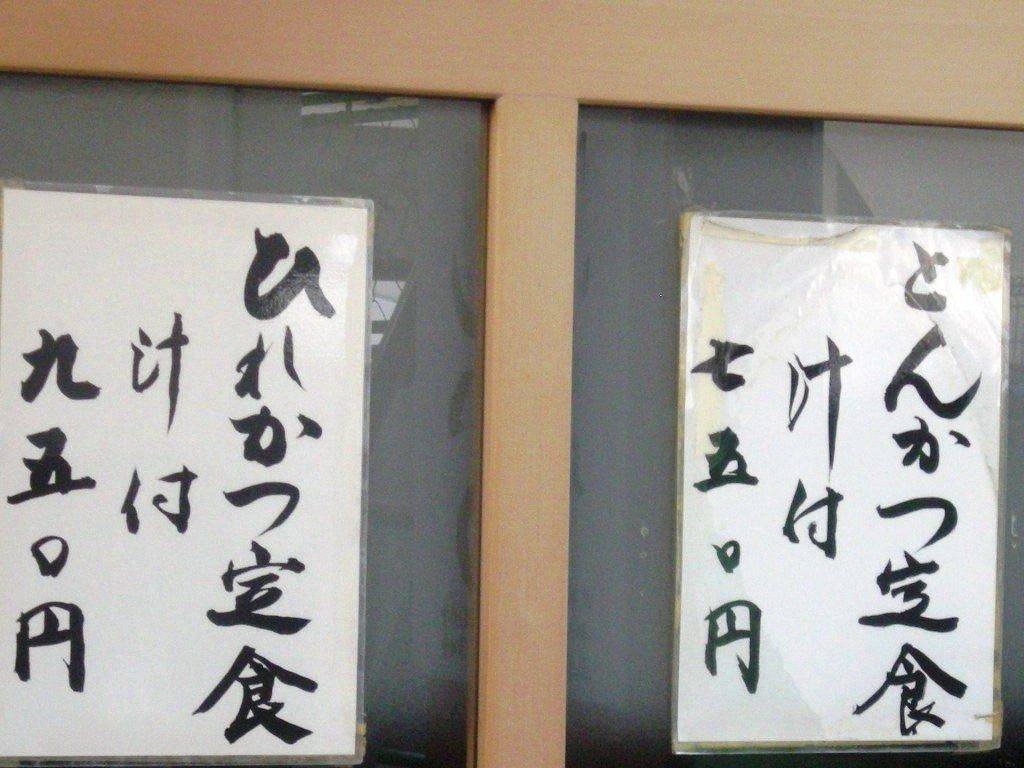 とんかつ定食
汁付
七五〇円
ひれかつ定食
汁付
九五〇円